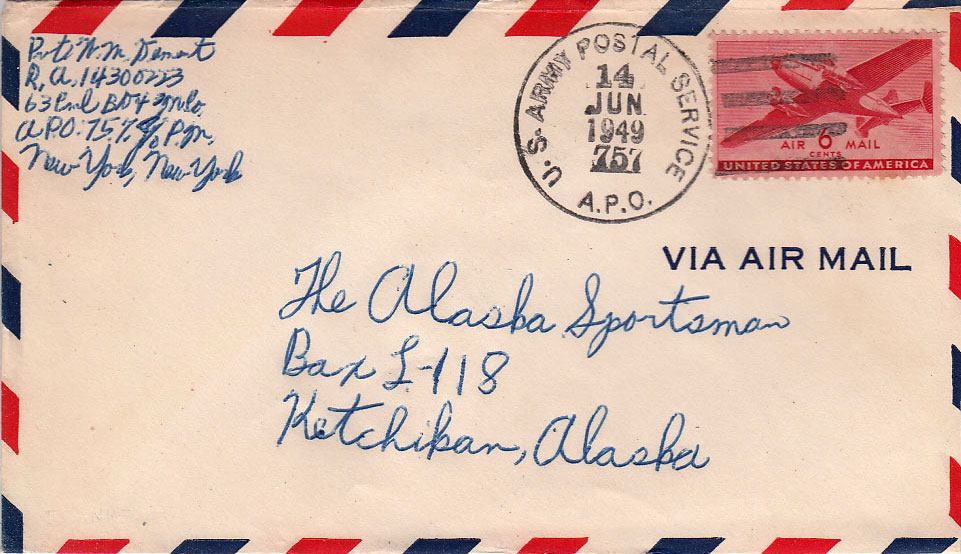 Pvt. W. M. Dement
R.A. 14300223
A.P.O. 757, c/o P.M.
New York, New York
U.S. ARMY POSTAL SERVICE
14
JUN
1949
757
A.P.O.
AIR 6 MAIL
CENTS
UNITED STATES OF AMERICA
VIA AIR MAIL
The Alaska Sportsman
Box L-118
Ketchikan, Alaska